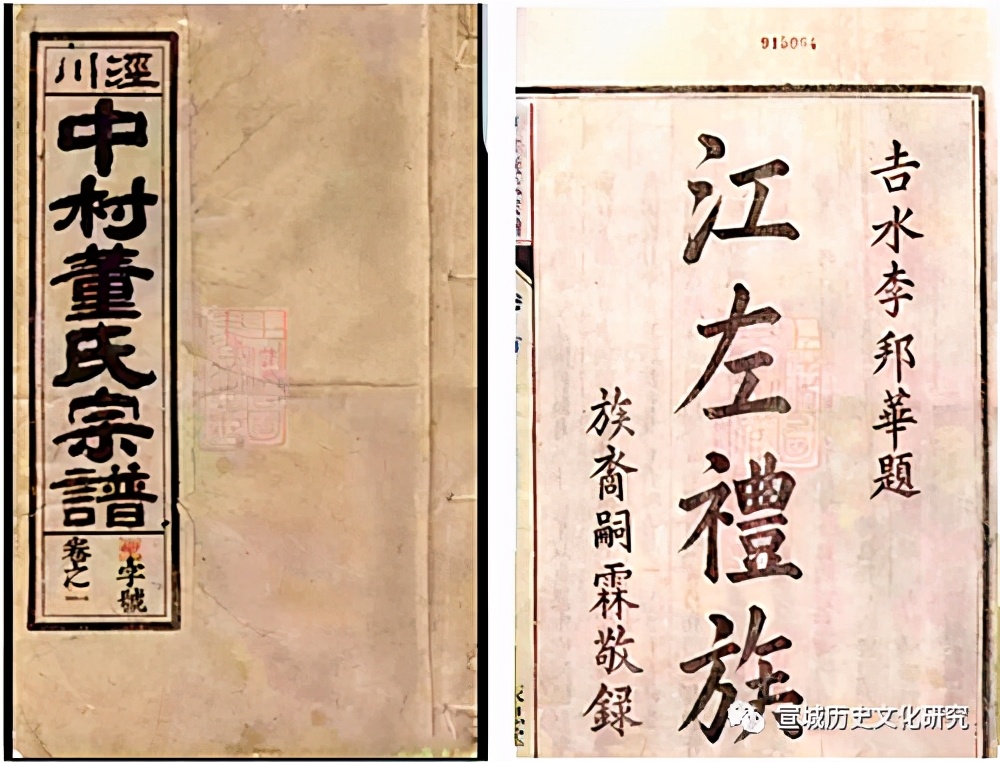 涇川
中村董氏宗譜
字號
卷之一
915064
吉水李邦華題
江左禮族
族裔嗣霖敬録
宣城历史文化研究